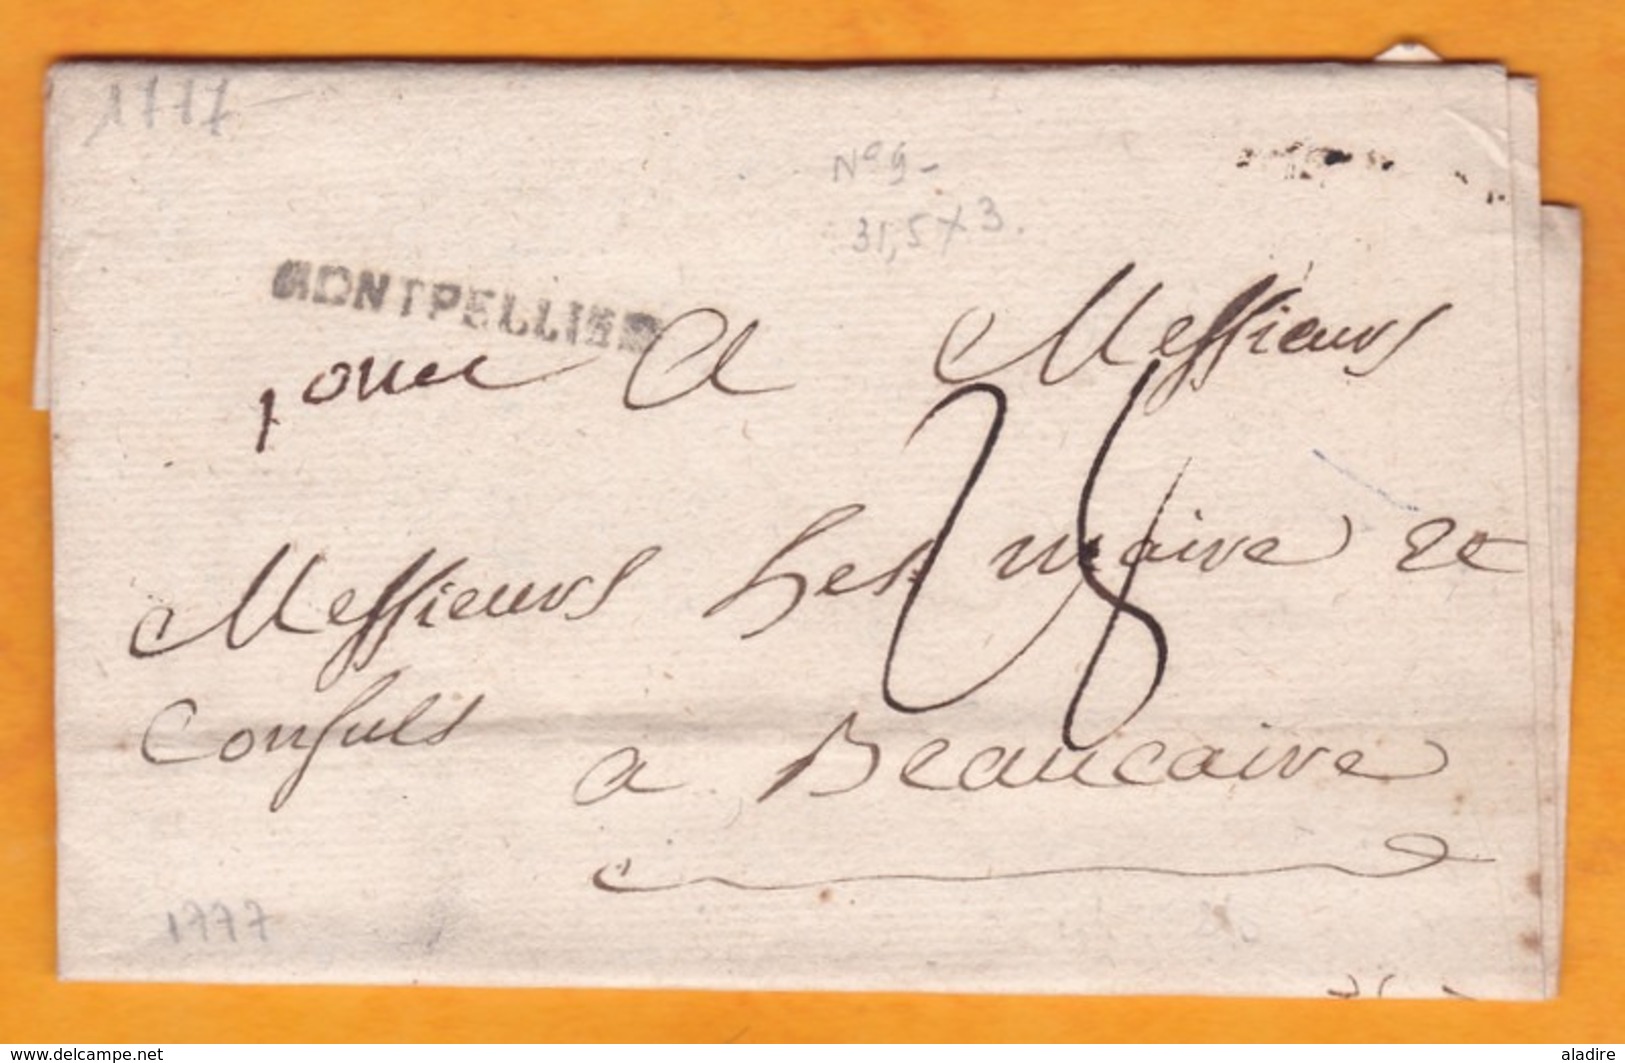 1777
N° 9 -
31,5 X 3.
MONTPELLIER
1 once A Messieurs
28
Messieurs Les maire et
Consuls
a Beaucaire
1777
www.delcampe.net
aladire